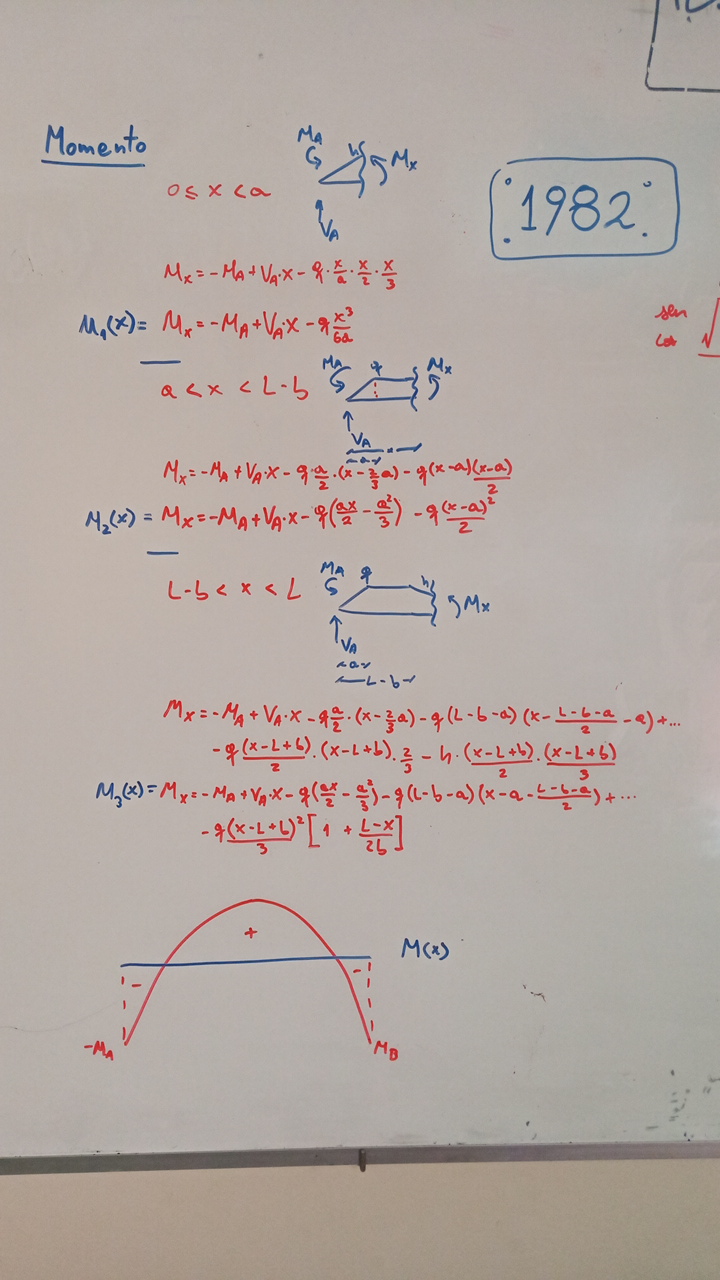 Momento
0 ≤ x < a
M_A h M_x
V_A
1982
M_x = -M_A + V_A·x - q·x/a·x/2·x/3
M_1(x) = M_x = -M_A + V_A·x - q x³/6a
sen
cos √
a < x < L-b
M_A q M_x
V_A
a
M_x = -M_A + V_A·x - q·a/2·(x - 2/3a) - q(x-a)(x-a)/2
M_2(x) = M_x = -M_A + V_A·x - q(ax/2 - a²/3) - q(x-a)²/2
L-b < x < L
M_A q h M_x
V_A
a
L-b
M_x = -M_A + V_A·x - q a/2·(x - 2/3a) - q(L-b-a)(x - L-b-a/2 - a) + ...
- q(x-L+b)/2·(x-L+b)·2/3 - h·(x-L+b)/2·(x-L+b)/3
M_3(x) = M_x = -M_A + V_A·x - q(ax/2 - a²/3) - q(L-b-a)(x-a - L-b-a/2) + ...
- q(x-L+b)²/3 [1 + L-x/2b]
+
M(x)
- -
-M_A M_B